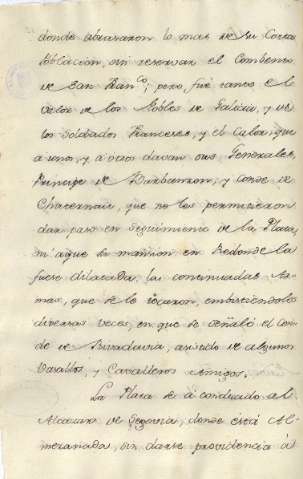 donde abrasaron lo mas de su Corta
Poblacion, sin reservar el Combento
de San Fran.co; pero, fué tanto el
Valor de los Nobles de Galicia, y de
los Soldados Franceses, y el Calor, que
à unos, y à otros davan sus Generales,
Principe de Barbanzon, y Conde de
que no les permitieron
dar paso en seguimiento de la Plata,
ni aque su mansion en Redondela
fuese dilatada, las continuadas Ar-
mas, que se le tocaron, embistiendolos
diversas veces, en que se señaló el con-
de de Rivadavia, asistido de algunos
Vasallos, y Cavalleros Amigos.
La Plata se á conducido al
Alcazar de Segovia, donde está Al-
mazenada, sin darse providencia à